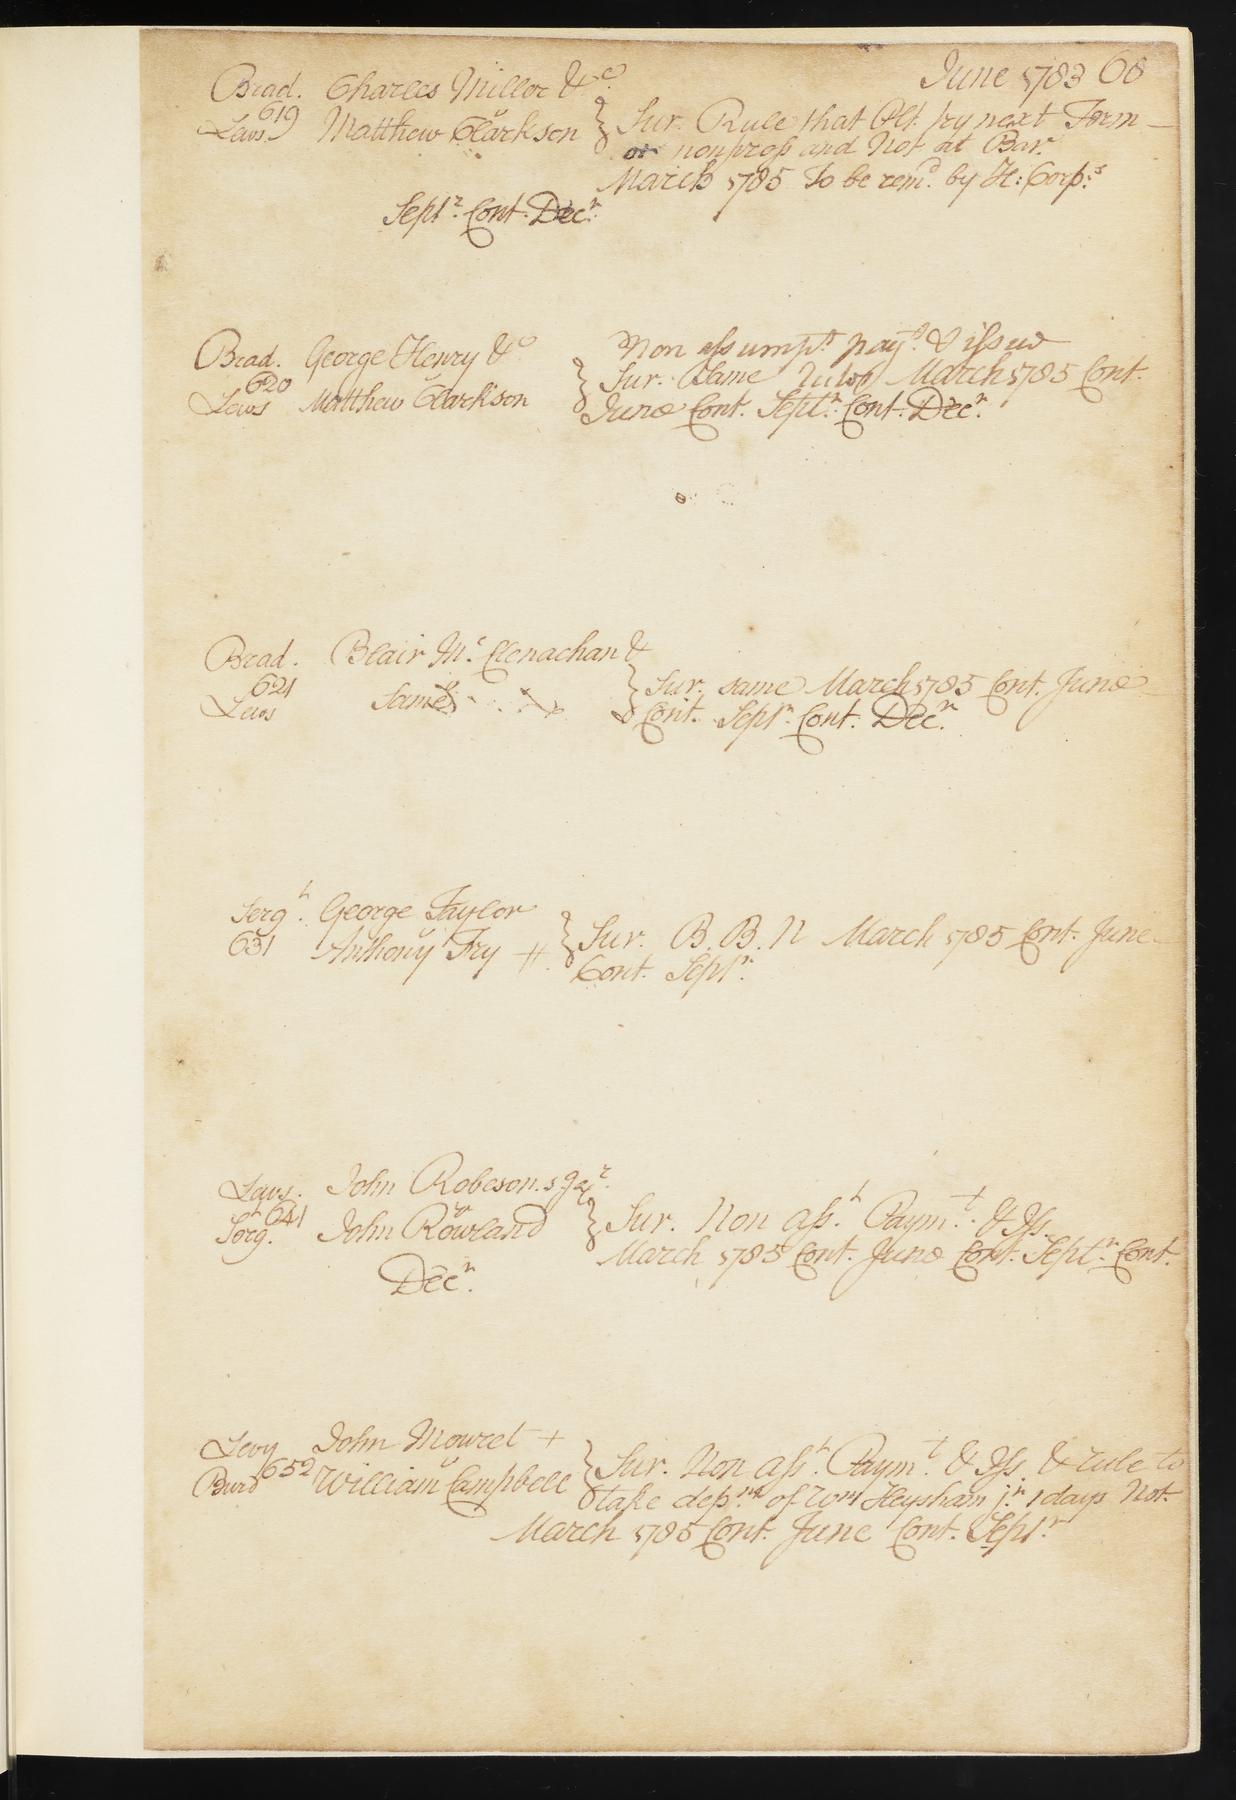 June 1783 68
Brad. Charles Miller & Co.
619
Lews. v Matthew Clarkson } Sur. Rule that Plt. try next Term
or nonpross and Not at Bar.
March 1785 To be remd. by H: Corps.
Septr. Cont. Decr.
Brad. George Henry & Co Non assumpt. payt. & issue
620
Lews v Matthew Clarkson } Sur. Same rules March 1785 Cont.
June Cont. Septr. Cont. Decr.
Brad. Blair Mc Clenachan &
621
Lews Same } Sur. same March 1785 Cont. June
Cont. Septr. Cont. Decr.
Sergt. George Taylor
631 v Anthony Fry } Sur. B. B. N March 1785 Cont. June
Cont. Septr.
Lews. John Robeson
641
Sergt. v John Rowland } Sur. Non asst. Paymt. & Iss.
March 1785 Cont. June Cont. Septr. Cont.
Decr.
Levy John Mowret +
652
Burd v William Campbell } Sur. Non asst. Paymt. & Iss. & rule to
take depns of Wm Heysham jr. 1 days Not.
March 1785 Cont. June Cont. Septr